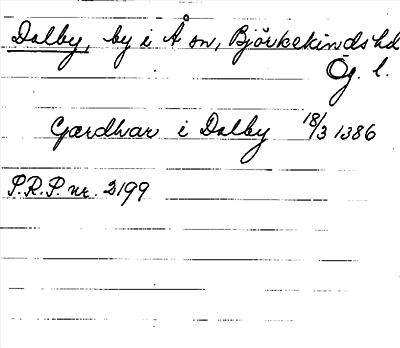 Dalby, by i Å sn, Björkekinds hd
Ög. l.
Gærdhar i Dalby 18/3 1386
P.R.P. nr. 2199